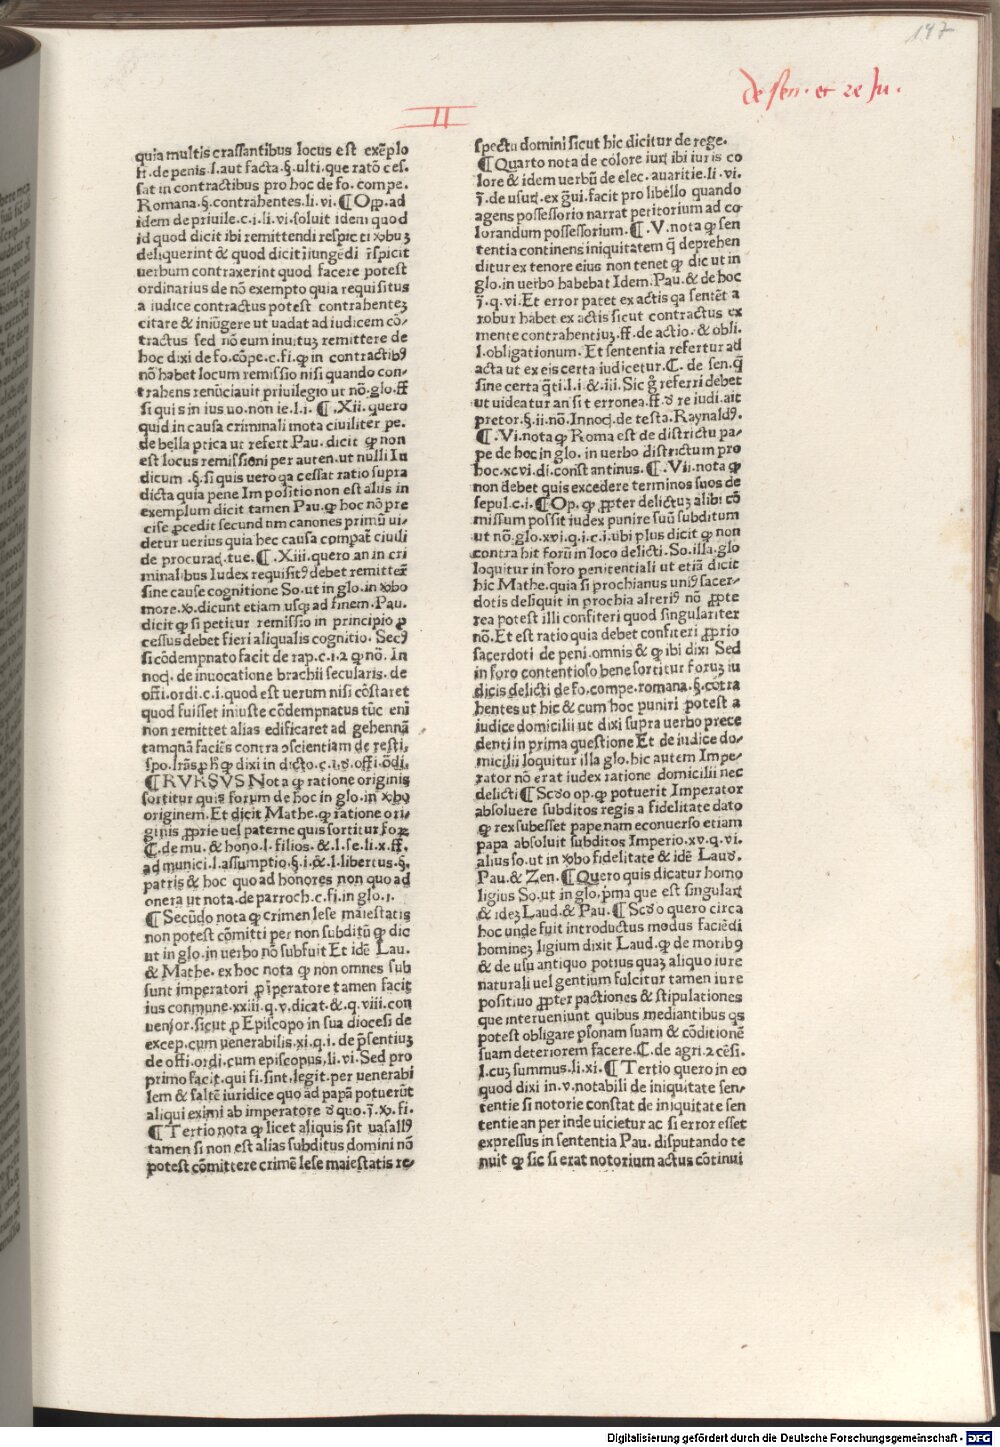 147
de sen. et re Iu.
II
quia multis crassantibus locus est exēplo
ff.de penis.l.aut facta.§.ulti.que ratō ces.
sat in contractibus pro hoc de fo.compe.
Romana.§.contrahentes.li.vi.¶Opp.ad
idem de priuile.c.i.li.vi.soluit idem quod
id quod dicit ibi remittendi respic
deliquerint & quod dicit iiungēdi r̄spicit
uerbum contraxerint quod facere potest
ordinarius de nō exempto quia requisitus
a iudice contractus potest contrahentez
citare & iniūgere ut uadat ad iudicem cō/
tractus sed nō eum inuituz remittere de
hoc dixi de fo.cōpe.c.fi.ꝙ in contractibꝰ
nō habet locum remissio nisi quando con/
trahens renūciauit priuilegio ut nō.glo.ff
si quis in ius uo.non ie.l.i.¶.Xii.quero
quid in causa criminali mota ciuiliter pe.
de bella ptica ut refert Pau.dicit ꝙ non
est locus remissioni per auten.ut nulli Iu
dicum.§.si quis uero qa cessat ratio supra
dicta quia pene Impositio non est aliis in
exemplum dicit tamen Pau.ꝙ hoc nō pre
cise ꝓcedit secundum canones primū ui/
detur uerius quia hec causa compat̄ ciuili
de procuraꝗ.tue.¶.Xiii.quero an in cri
minalibus Iudex requisitꝰ debet remitter̄
sine cause cognitione So.ut in glo.in
more.ꝟ.dicunt etiam usqꝫ ad finem.Pau.
dicit ꝙ si petitur remissio in principio ꝓ
cessus debet fieri aliqualis cognitio.Secꝰ
si cōdempnato facit de rap.c.1.2 ꝙ nō.In
de inuocatione brachii secularis.de
offi.ordi.c.i.quod est uerum nisi cōstaret
quod fuisset iniuste cōdempnatus tūc eni
non remittet alias edificaret ad gehennā
tamqnā faciēs contra ɔscientiam de resti,
spo.
¶RVRSVS Nota ꝙ ratione originis
sortitur quis forum de hoc in glo.in
originem.Et dicit Mathe.ꝙ ratione ori/
ginis ꝓprie uel paterne quis sortitur foꝝ
C.de mu.& hono.l.filios.&.l.se.li.x.ff.
ad munici.l.assumptio.§.i.&.l.libertus.§.
patris & hoc quo ad honores non quo ad
onera ut nota.de parroch.c.fi.in glo.1.
¶Secūdo nota ꝙ crimen lese maiestatis
non potest cōmitti per non subditū ꝙ dic
ut in glo.in uerbo nō subfuit Et idē Lau.
& Mathe.ex hoc nota ꝙ non omnes sub
sunt imperatori ꝑ īperatore tamen facit
ius conmune.xxiii.q.v.dicat.&.q.viii.con
uenior.sicut ꝓ Episcopo in sua diocesi de
excep.cum uenerabilis.xi.q.i.de p̄sentiuz
de offi.ordi.cum episcopus.li.vi.Sed pro
primo facit.qui fi.sint.legit.per uenerabi
lem & saltē iuridice quo ad papā potuerūt
aliqui eximi ab imperatore
¶Tertio nota ꝙ licet aliquis sit uasallꝰ
tamen si non est alias subditus domini nō
potest cōmittere crimē lese maiestatis re/
spectu domini sicut hic dicitur de rege.
¶Quarto nota de colore iuꝝ ibi iuris co
lore & idem uerbū de elec.auaritie.li.vi.
facit pro libello quando
agens possessorio narrat peritorium ad co
lorandum possessorium.¶.V.nota ꝙ sen
tentia continens iniquitatem q̄ deprehen
ditur ex tenore eius non tenet ꝙ dic ut in
glo.in uerbo habebat Idem.Pau.& de hoc
.q.vi.Et error patet ex actis qa sentēt a
robur habet ex actis sicut contractus ex
mente contrahentiuz.ff.de actio.& obli.
l.obligationum.Et sententia refertur ad
acta ut ex eis certa iudicetur.C.de sen.q̄
sine certa q̄ti.l.i.&.iii.Sic referri debet
ut uideatur an sit erronea.ff. re iudi.ait
pretor.§.ii.nō.Innoc̨.de testa.Raynaldꝰ.
¶.Vi.nota ꝙ Roma est de districtu pa/
pe de hoc in glo.in uerbo districtum pro
hoc.xcvi.di.constantinus.¶.Vii.nota ꝙ
non debet quis excedere terminos suos de
sepul.c.i.¶Op.ꝙ ꝓpter delictuz alibi cō
missum possit iudex punire suū subditum
ut nō.glo.xvi.q.i.c.i.ubi plus dicit ꝙ non
contrahit forū in loco delicti.So.illa.glo
loquitur in foro penitentiali ut etiā dicit
hic Mathe.quia si prochianus uniꝰ sacer/
dotis deliquit in prochia alteriꝰ nō ꝓpte
rea potest illi confiteri quod singulariter
nō.Et est ratio quia debet confiteri ꝓprio
sacerdoti de peni.omnis & ꝙ ibi dixi Sed
in foro contentioso bene sortitur foruz iu
dicis delicti de fo.compe.romana.§.cōtra
hentes ut hic & cum hoc puniri potest a
iudice domicilii ut dixi supra uerbo prece
denti in prima questione Et de iudice do/
micilii loquitur illa glo.hic autem Impe/
rator nō erat iudex ratione domicilii nec
delicti ¶ op.ꝙ potuerit Imperator
absoluere subditos regis a fidelitate dato
ꝙ rex subesset pape nam econuerso etiam
papa absoluit subditos Imperio.xv.q.vi.
alius so.ut in fidelitate & idē
Pau.& Zen.¶Quero quis dicatur homo
ligius So.ut in glo.p̄ma que est singularꝭ
& idez Laud.& Pau.¶ quero circa
hoc unde fuit introductus modus faciēdi
hominez ligium dixit Laud.ꝙ de moribꝰ
& de usu antiquo potius quaz aliquo iure
naturali uel gentium fulcitur tamen iure
positiuo ꝓpter pactiones & stipulationes
que interueniunt quibus mediantibus qs
potest obligare psonam suam & cōditionē
suam deteriorem facere.C.de agri.2 cēsi.
l.cuz summus.li.xi.¶Tertio quero in eo
quod dixi in.v.notabili de iniquitate sen/
tentie si notorie constat de iniquitate sen
tentie an per inde uicietur ac si error esset
expressus in sententia Pau.disputando te
nuit ꝙ sic si erat notorium actus cōtinui
Digitalisierung gefördert durch die Deutsche Forschungsgemeinschaft - DFG